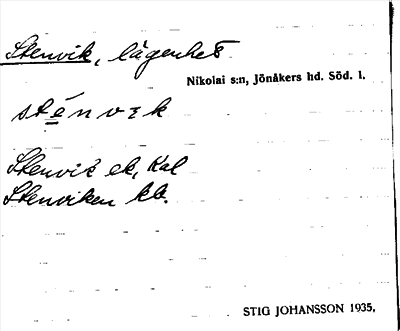 Stenvik, lägenhet
Nikolai s:n, Jönåkers hd. Söd. l.
sténvɩk
Stenvik ek, Kal
Stenviken kb.
STIG JOHANSSON 1935.